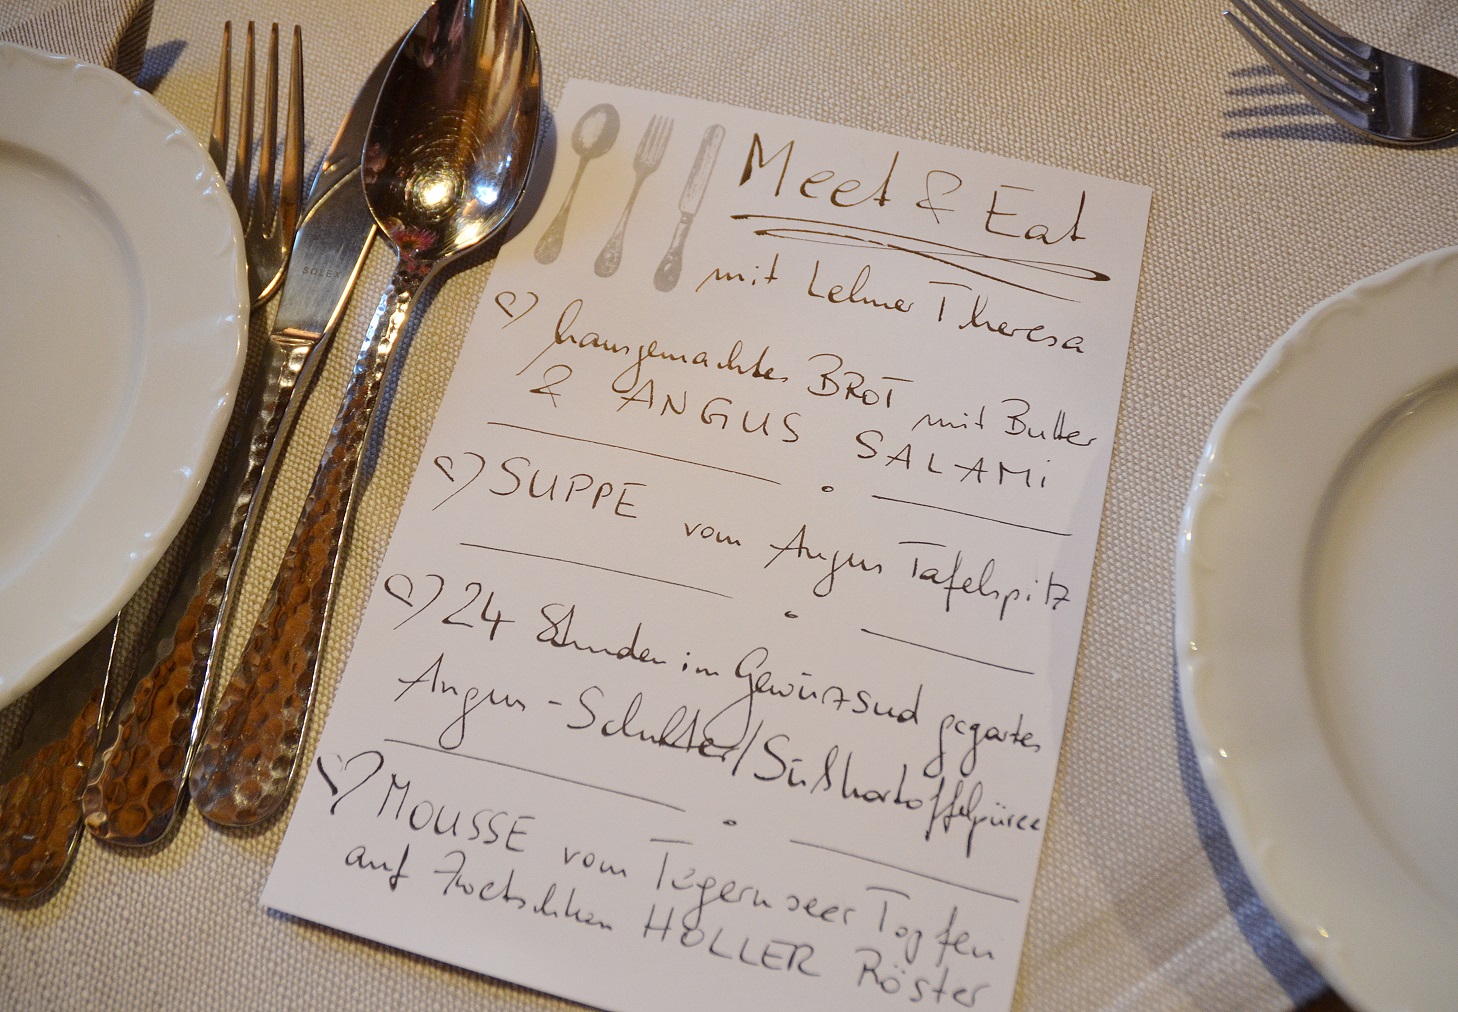 SOLEX
Meet & Eat
mit Lehner Theresa
hausgemachtes BROT mit Butter
& ANGUS SALAMi
SUPPE vom Angus Tafelspitz
24 Stunden im Gewürzsud gegartes
Angus-Schulter/Süßkartoffelpüree
MOUSSE vom Tegernseer Topfen
auf Zwetschken HOLLER Röster